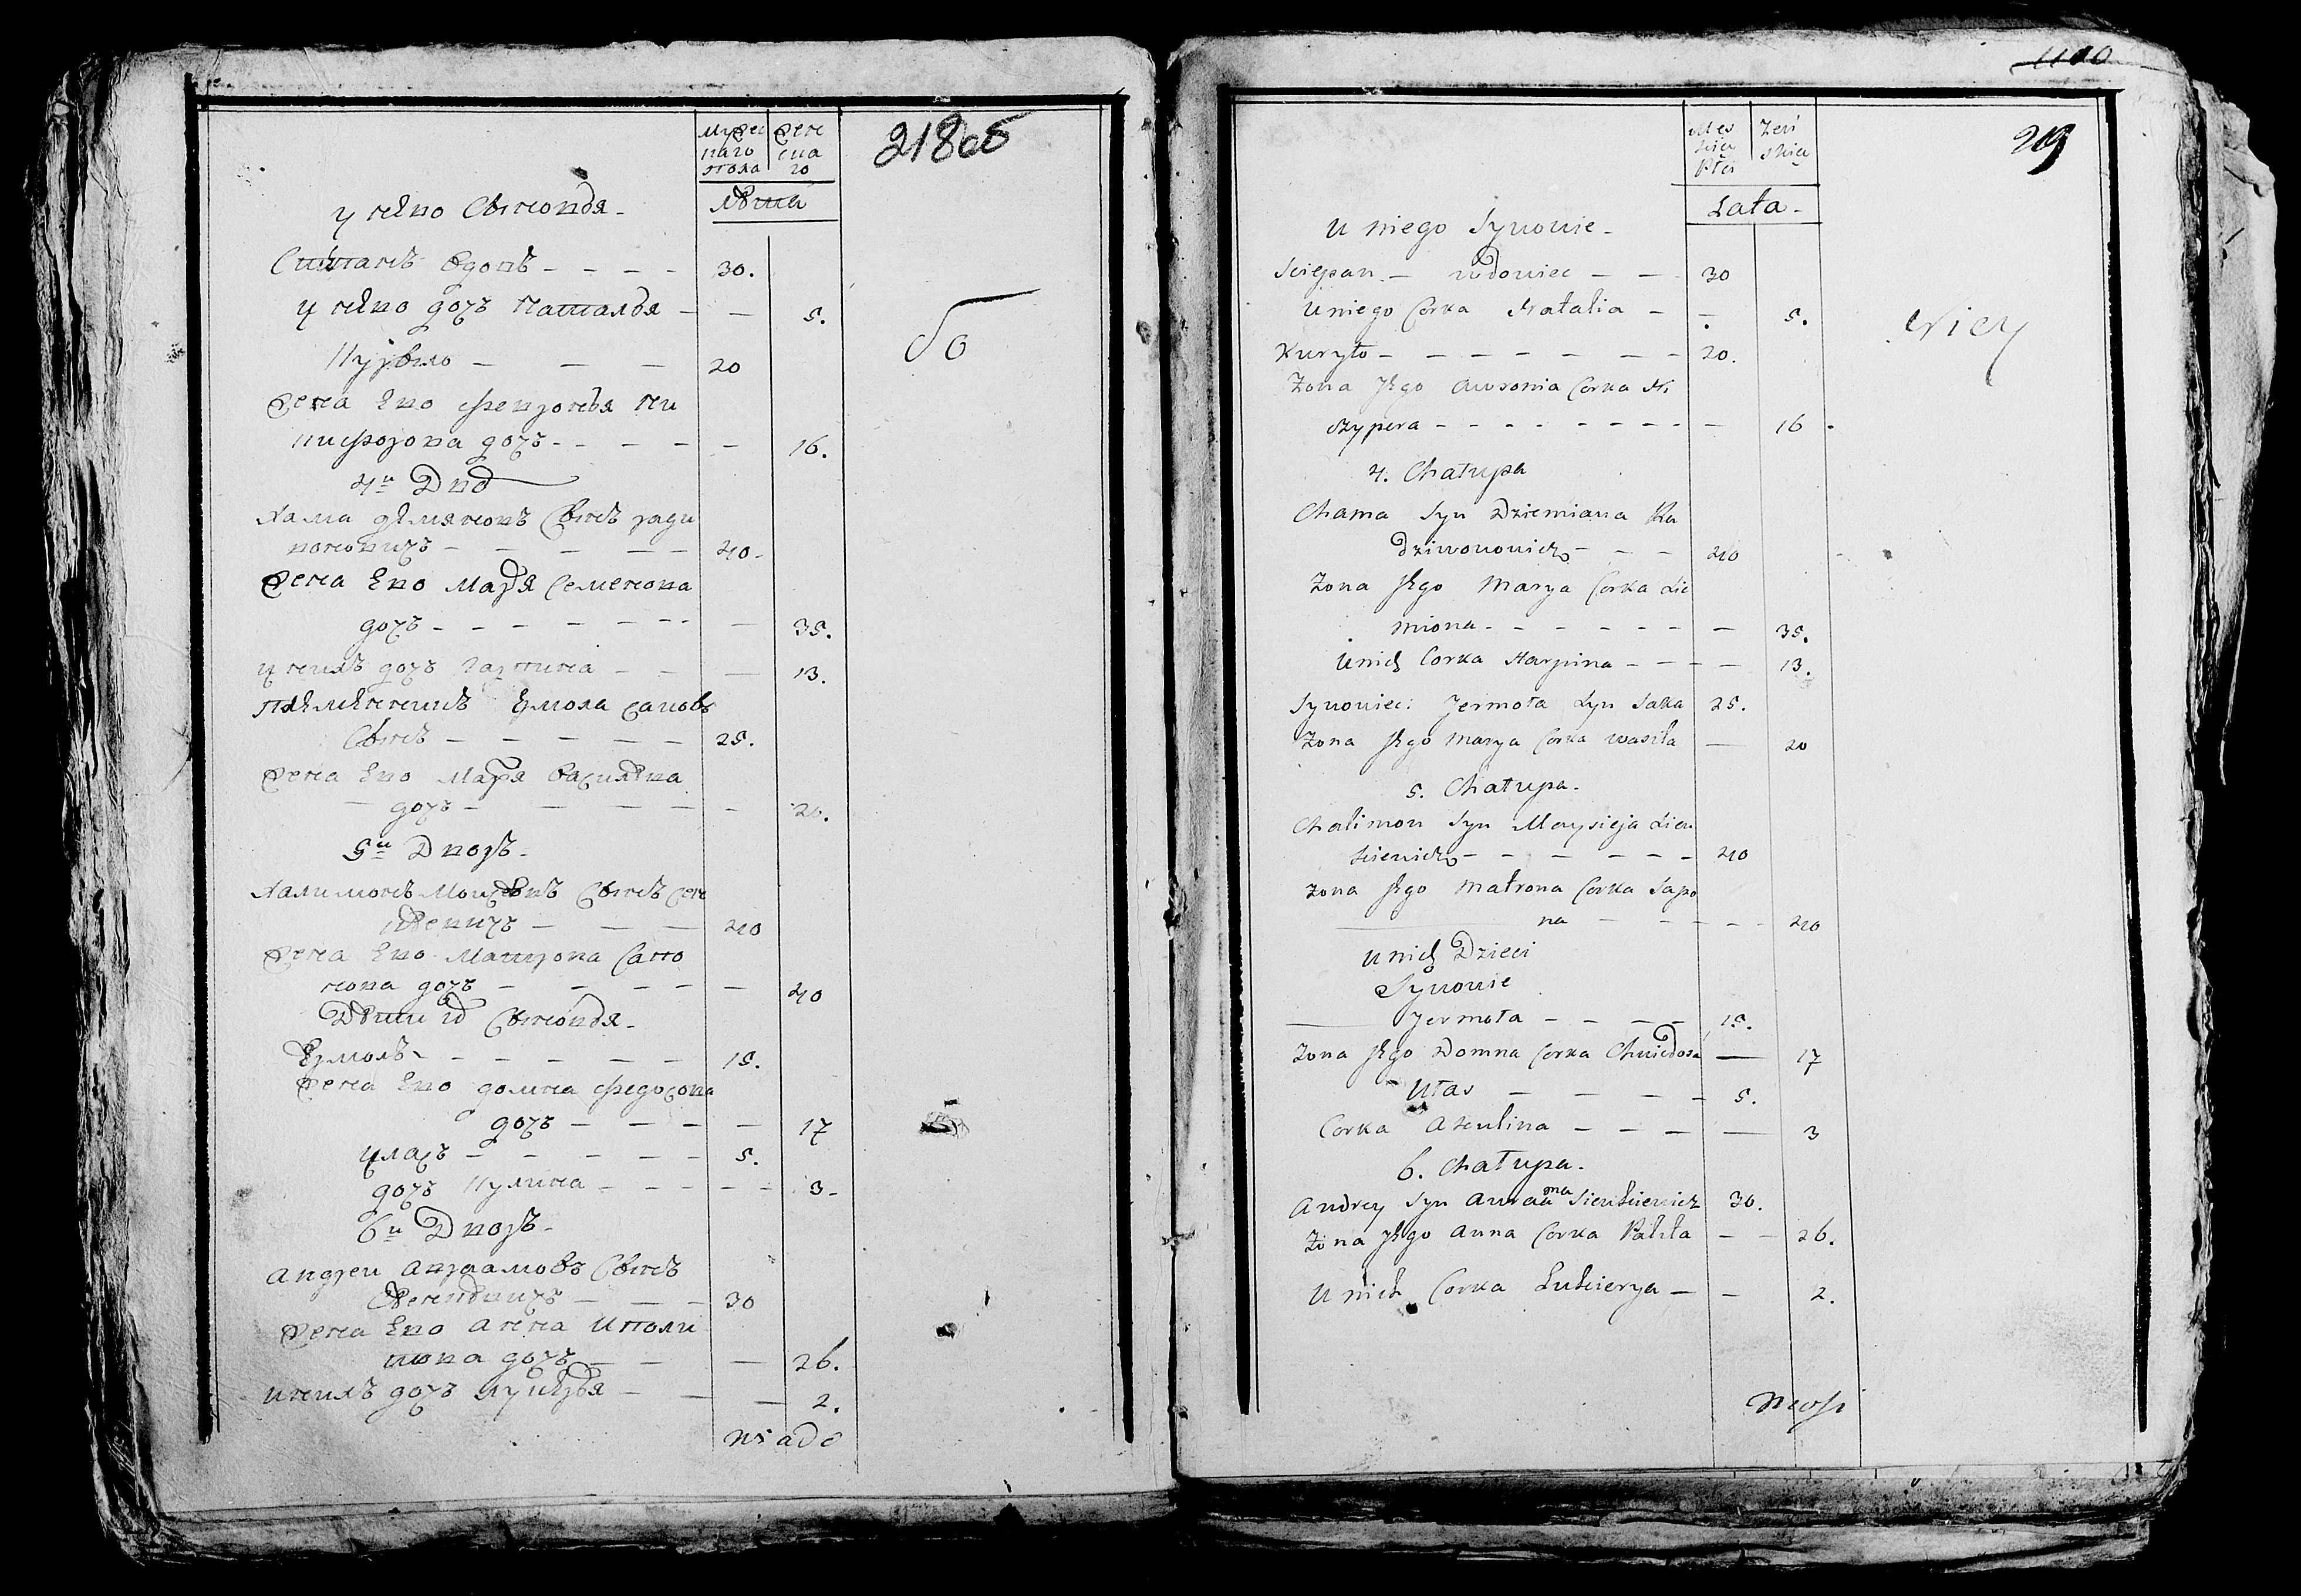 218 об
Мужес Жене
каго ска
пола го
Лѣта
у нѣво Сыновья
Стѣпанъ вдовъ - - - - 30.
у нѣво дочь Наталья - - 5.
Курыло - - - 20
Жена Ево Февронья Ни
кифорова дочь - - - - - 16.
4й Дво
Хама Дѣмяновъ Сынъ Ради
воновичъ - - - - - 40
Жена Ево Марья Семенова
дочь - - - - - - - - 35.
у нихъ дочь Гарпина - - - 13.
Племѣнникъ Ермола Саковъ
Сынъ - - - - - 25.
Жена Ево Марья Василѣва
- дочь - - - - - 20.
5й Дворъ
Халимонъ Моисѣевъ Сынъ Сен
кевичъ - - - 40
Жена Ево Матрона Сапо
нова дочь - - - - - 40
Дѣти ю Сыновья
Ермолъ - - - - - - 15.
Жена Ево Домна Федосова
дочь - - - - 17
Уласъ - - - - - 5.
дочь Кулина - - - - - 3
6й Дворъ
Андреи Авраамовъ Сынъ
- - - 30
Жена Ево Анна Иполи
това дочь - - - 26.
у нихъ дочь Лукѣрья - - - 2.
219
Mes Zeń
skiey skiey
Płci
Lata
u niego Synowie
Sciepan - wdowiec - - 30
U niego Corka Natalia - - 5.
Kuryło - - - - - - - 20.
Żona Jego Awsonia Corka Ni
czypera - - - - - - - - - 16
4. Chałupa
Chama Syn Dziemiana Ra
dziwonowicz - - - 40
Żona Jego Marya Corka Sie
miona - - - - - - - 35.
U nich Corka Harpina - - - - 13.
Synowiec: Jermoła Syn Saka 25.
Żona Jego Marya Corka Wasila - 20
5. Chałupa.
Chalimon Syn Moysieja Sien
kiewicz - - - - - - 40
Żona Jego Matrona Corka Sapo
na - - - - - 40
U nich Dzieci
Synowie
Jermoła - - - - 15.
Żona Jego Domna Corka Chwiedosa - 17
Ułas - - - - - 5.
Corka Akulina - - - - 3
6. Chałupa.
Andrey Syn Awraama Sienkiewicz 30.
Żona Jego Anna Corka - - 26.
U nich Corka Łukierya - - 2.